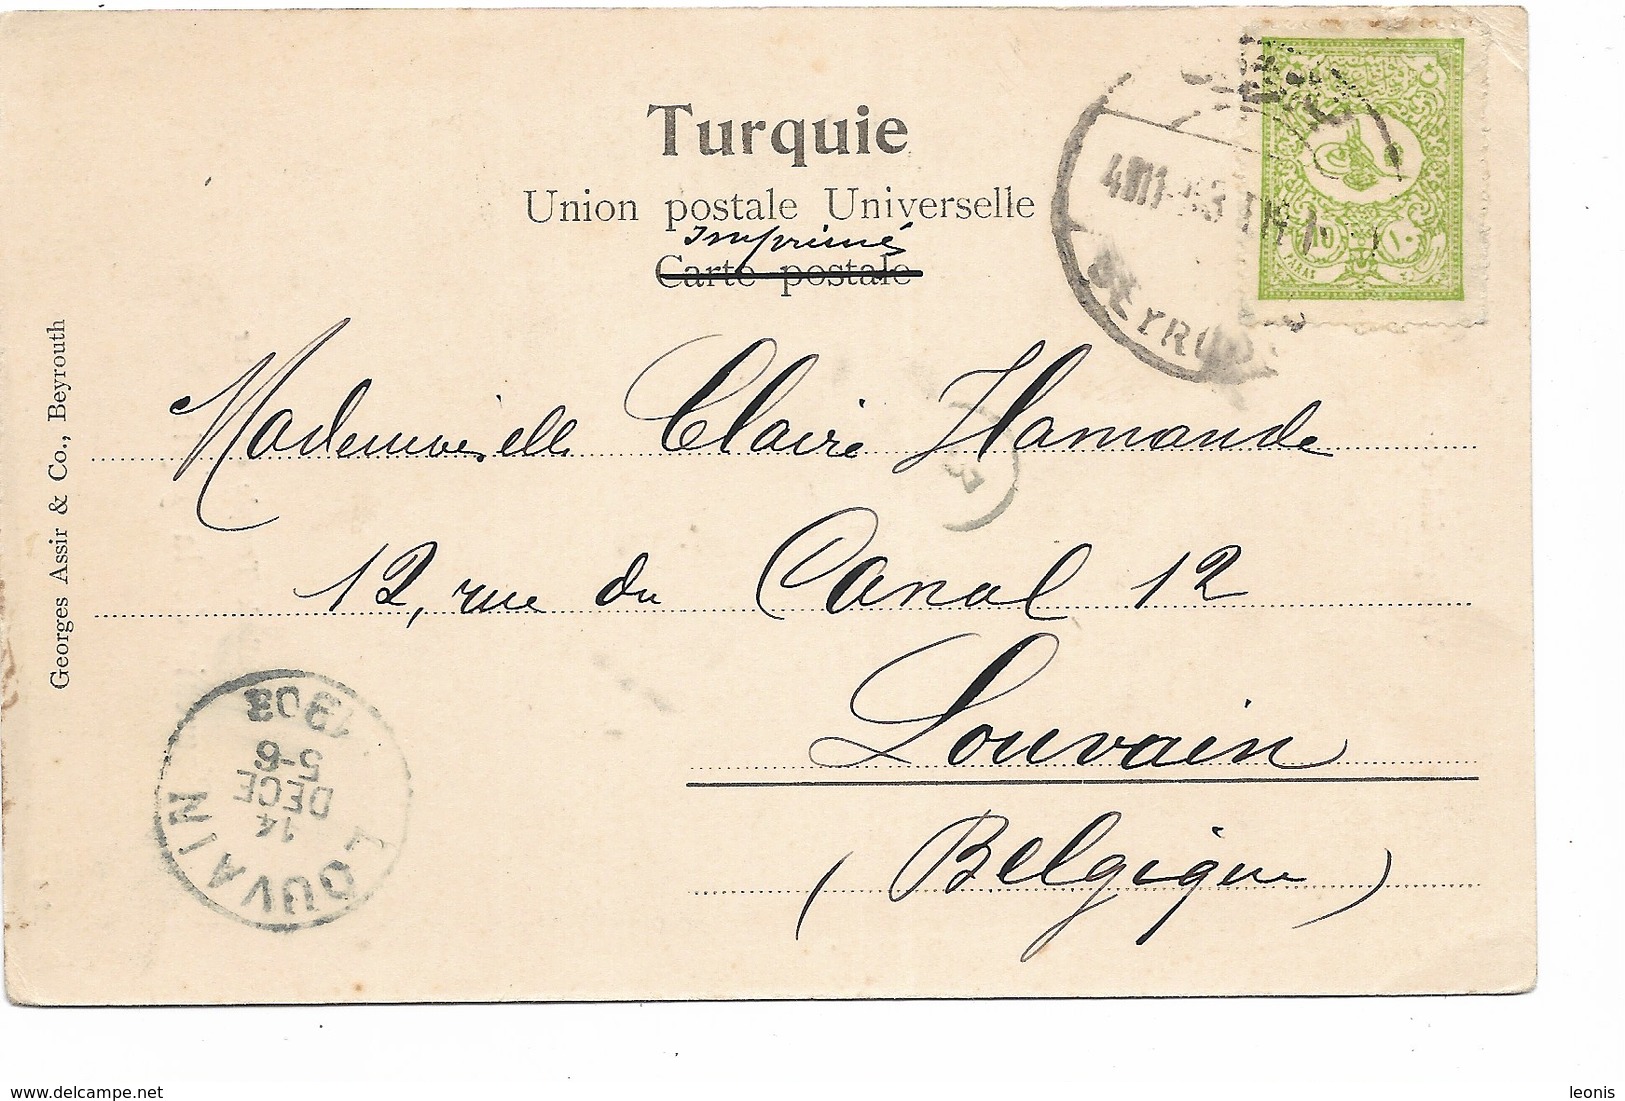 Turquie
Union postale Universelle
Imprimés
Carte postale
BEYROUT
10
PARAS
١٠
Mademoiselle Claire Hamande
12, rue du Canal 12
Louvain
(Belgique)
Georges Assir & Co., Beyrouth
LOUVAIN
14
DECE
5-6
1903
www.delcampe.net
leonis